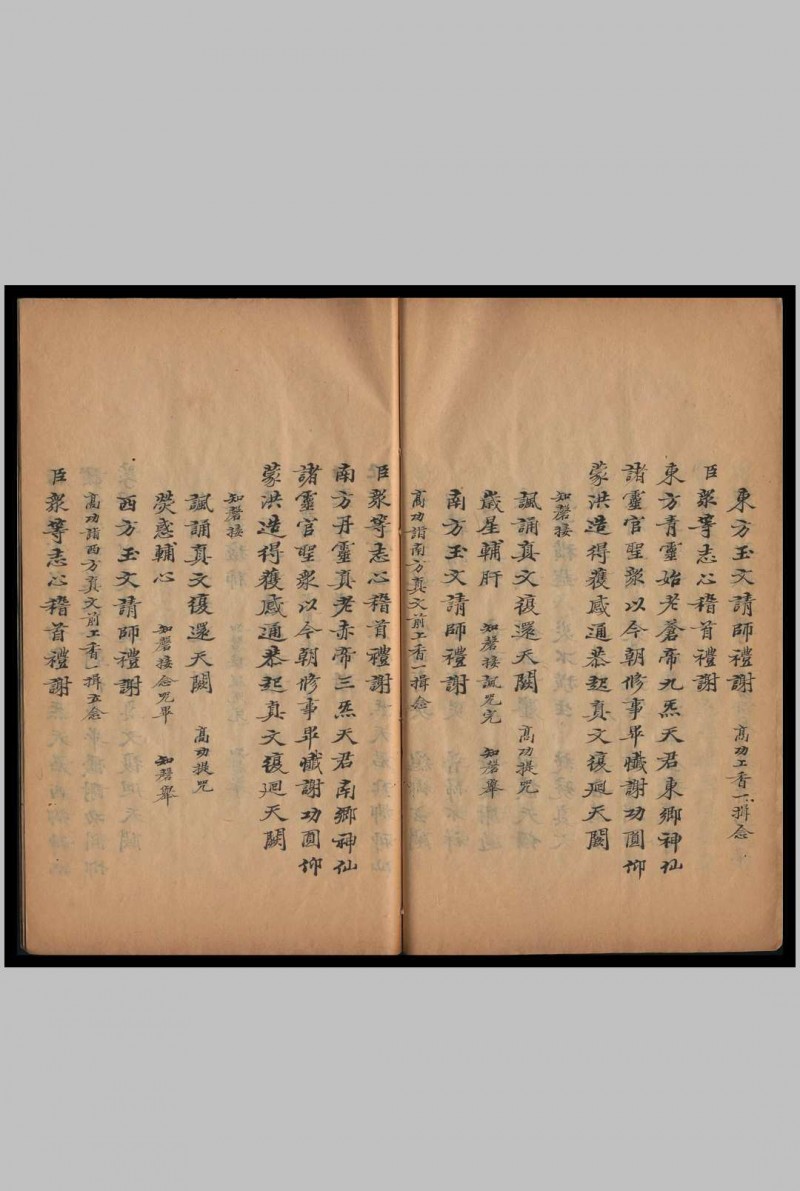 東方玉文請師禮謝 高功上香一揖念
臣眾等志心稽首禮謝
東方青靈始老蒼帝九炁天君東鄉神仙
諸靈官聖衆以今朝修事畢懺謝功圓仰
蒙洪造得獲感通恭起真文復廻天闕
知磬接
諷誦真文復還天闕 高功提咒
歲星輔肝 知磬接諷咒完 知磬舉
南方玉文請師禮謝
高功詣南方真文前上香一揖念
臣衆等志心稽首禮謝
南方丹靈真老赤帝三炁天君南鄉神仙
諸靈官聖衆以今朝修事畢懺謝功圓仰
蒙洪造得獲感通恭起真文復廻天闕
知磬接
諷誦真文復還天闕 高功提咒
熒惑輔心 知磬接念咒畢 知磬舉
西方玉文請師禮謝
高功詣西方真文前上香一揖五念
臣衆等志心稽首禮謝